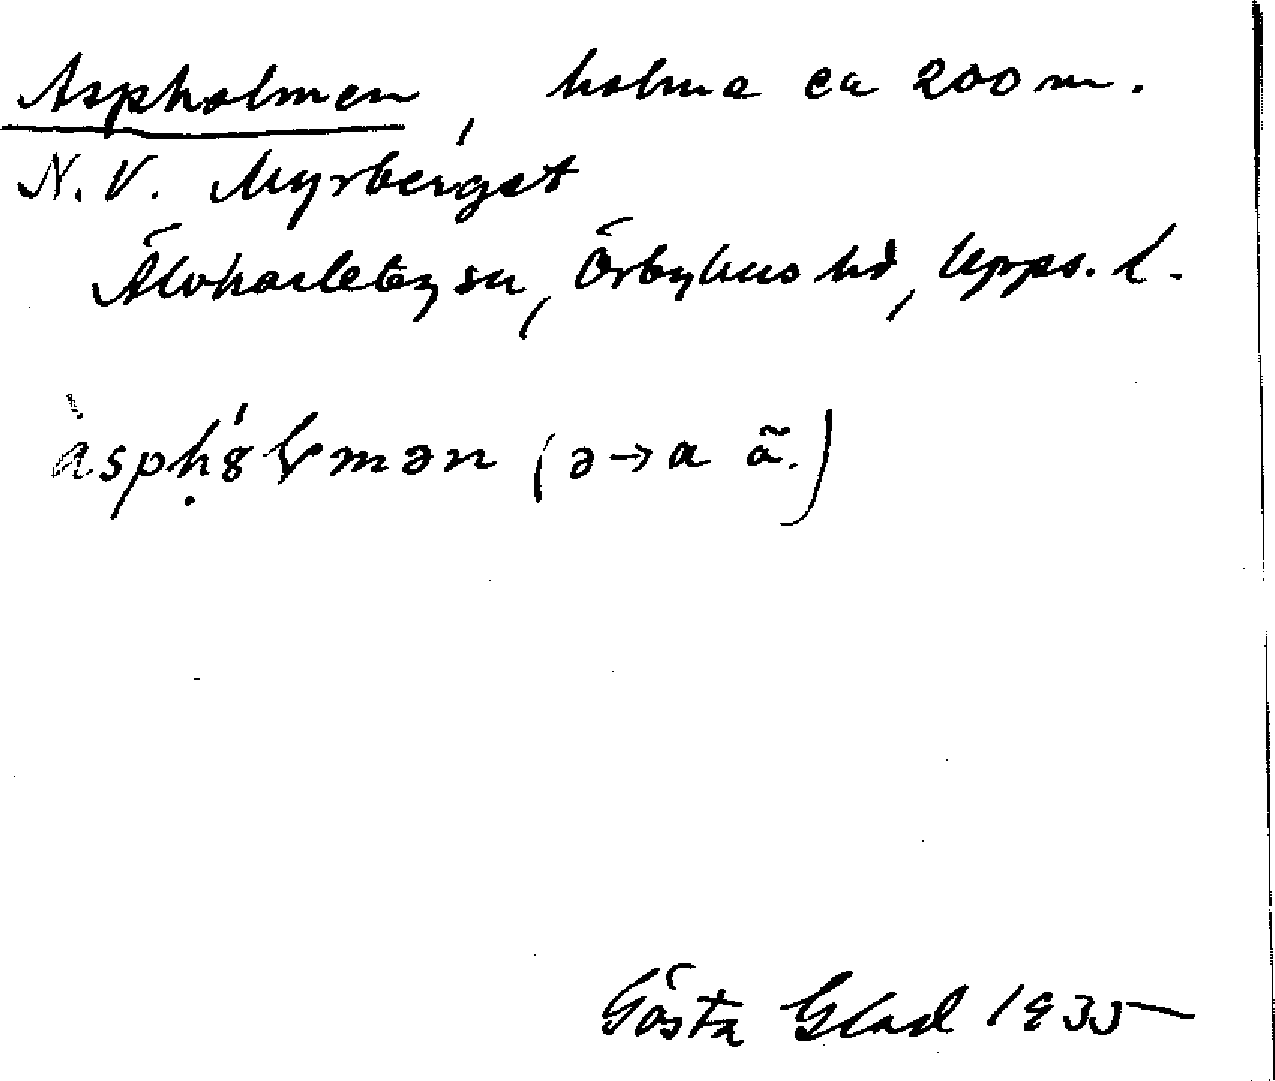 Aspholmen, holme ca 200 m.
N.V. Myrberget
Älvkarleby sn, Örbyhus hd, Upps. l.
àspḥ́ȣɽmən (ə→a ã.)
Gösta Glad 1935